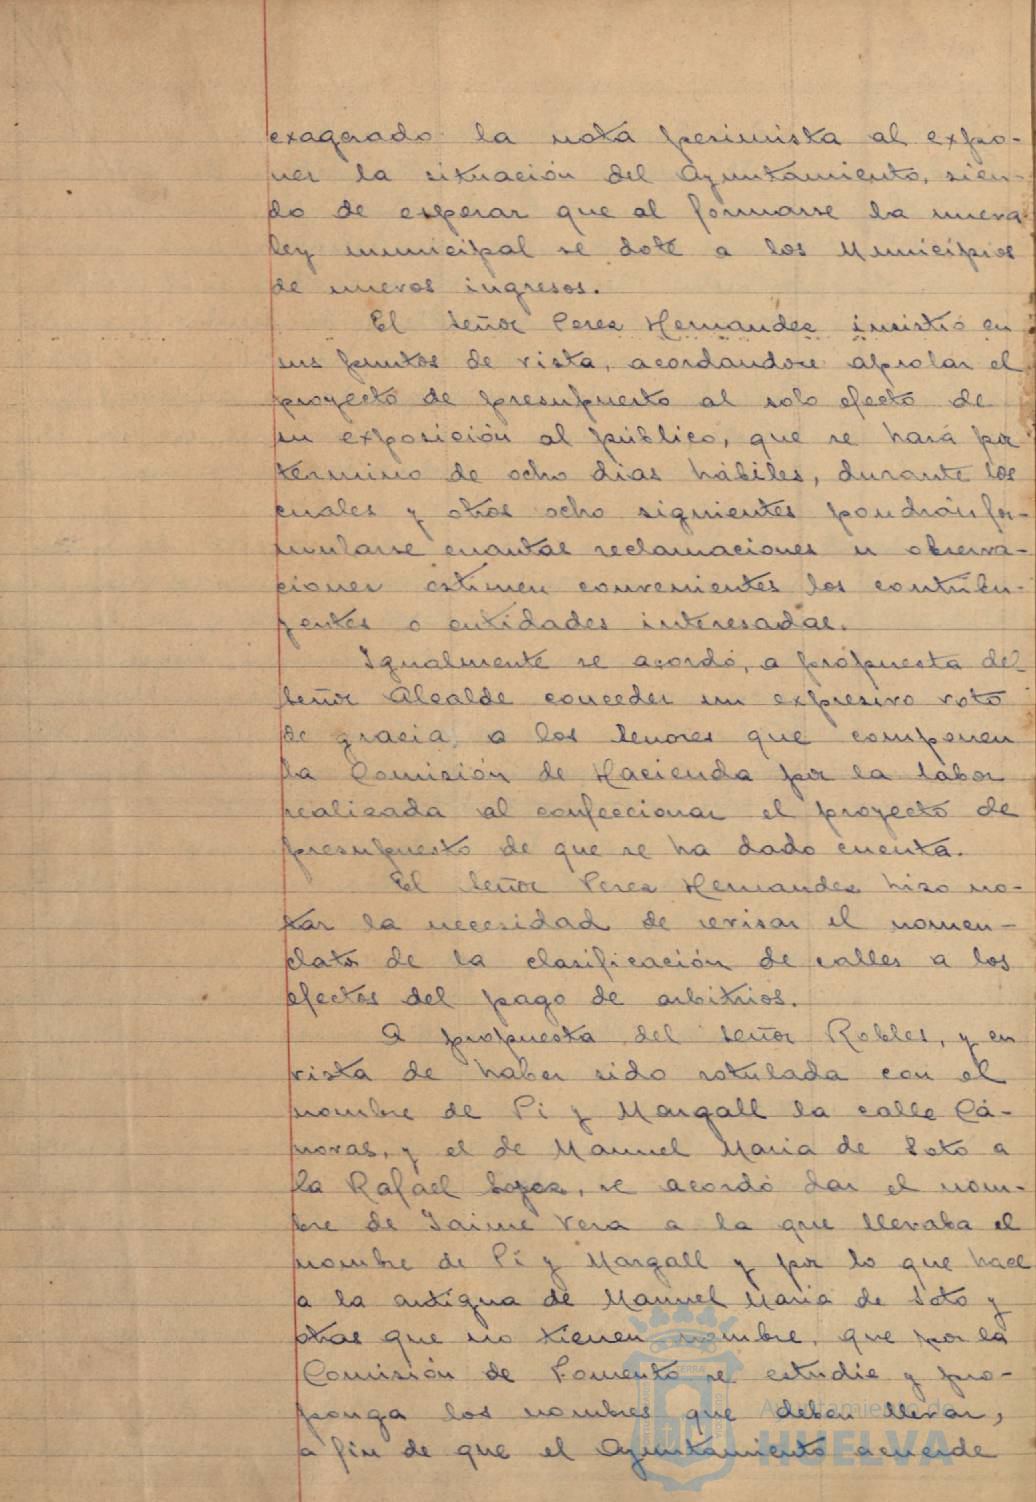 exagerado la nota pesimista al expo-
ner la situación del Ayuntamiento, sien-
do de esperar que al formarse la nueva
ley municipal se dote a los Municipios
de nuevos ingresos.
El Señor Perez Hernandez insistió en
sus puntos de vista, acordandose aprobar el
proyecto de presupuesto al solo efecto de
su exposición al público, que se hará por
término de ocho dias hábiles, durante los
cuales y otros ocho siguientes pondrán for-
mularse cuantas reclamaciones u observa-
ciones estimen convenientes los contribu-
yentes o entidades interesadas.
Igualmente se acordó, a propuesta del
Señor Alcalde conceder un expresivo voto
de gracia, a los Senores que componen
la Comisión de Hacienda por la labor
realizada al confeccionar el proyecto de
presupuesto de que se ha dado cuenta.
El Señor Perez Hernandez hizo no-
tar la necesidad de revisar el nomen-
clator de la clasificación de calles a los
efectos del pago de arbitrios.
A propuesta del Señor Robles, y en
vista de haber sido rotulada con el
nombre de Pi y Margall la calle Cá-
novas, y el de Manuel Maria de Soto a
la Rafael, se acordó dar el nom-
bre de Jaime Vera a la que llevaba el
nombre de Pi y Margall y por lo que hace
a la antigua de Manuel Maria de Soto y
otras que no tienen nombre, que por la
Comisión de Fomento se estudie y pro-
ponga los nombres que deben llevar,
a fin de que el Ayuntamiento acuerde
Ayuntamiento de
HUELVA